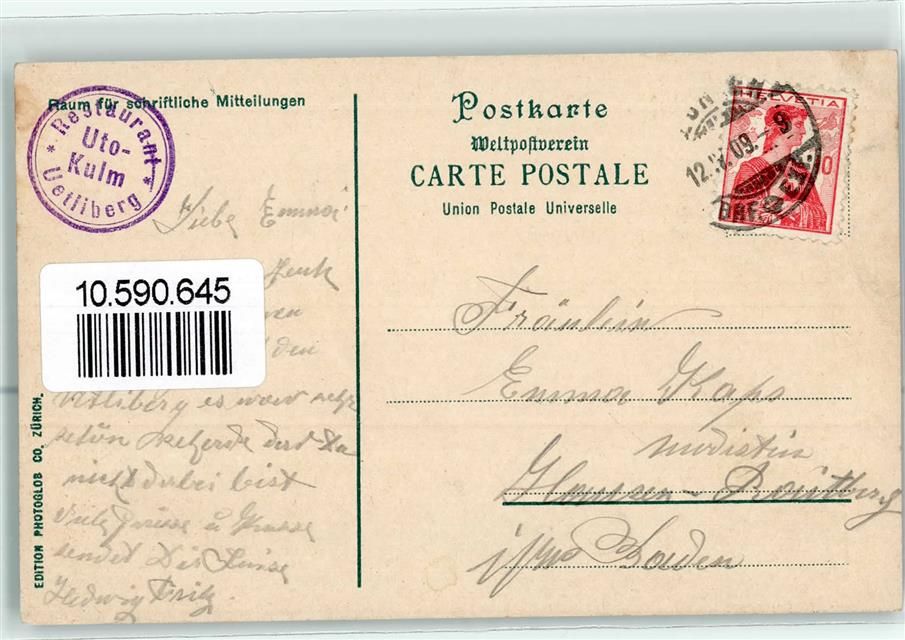 Raum für schriftliche Mitteilungen
* Restaurant *
Uto-
Kulm
Uetliberg
Postkarte
Weltpostverein
CARTE POSTALE
Union Postale Universelle
HELVETIA
12. 09.- 9
10.590.645
Liebe Emma!
den
Uetliberg es war sehr
schön schade das du
nicht dabei bist
Viele Grüsse u Küsse
sendet Dir Luise
Hedwig Fritz
Fräulein
Emma Kaps
modistin
Baden
EDITION PHOTOGLOB CO. ZÜRICH.